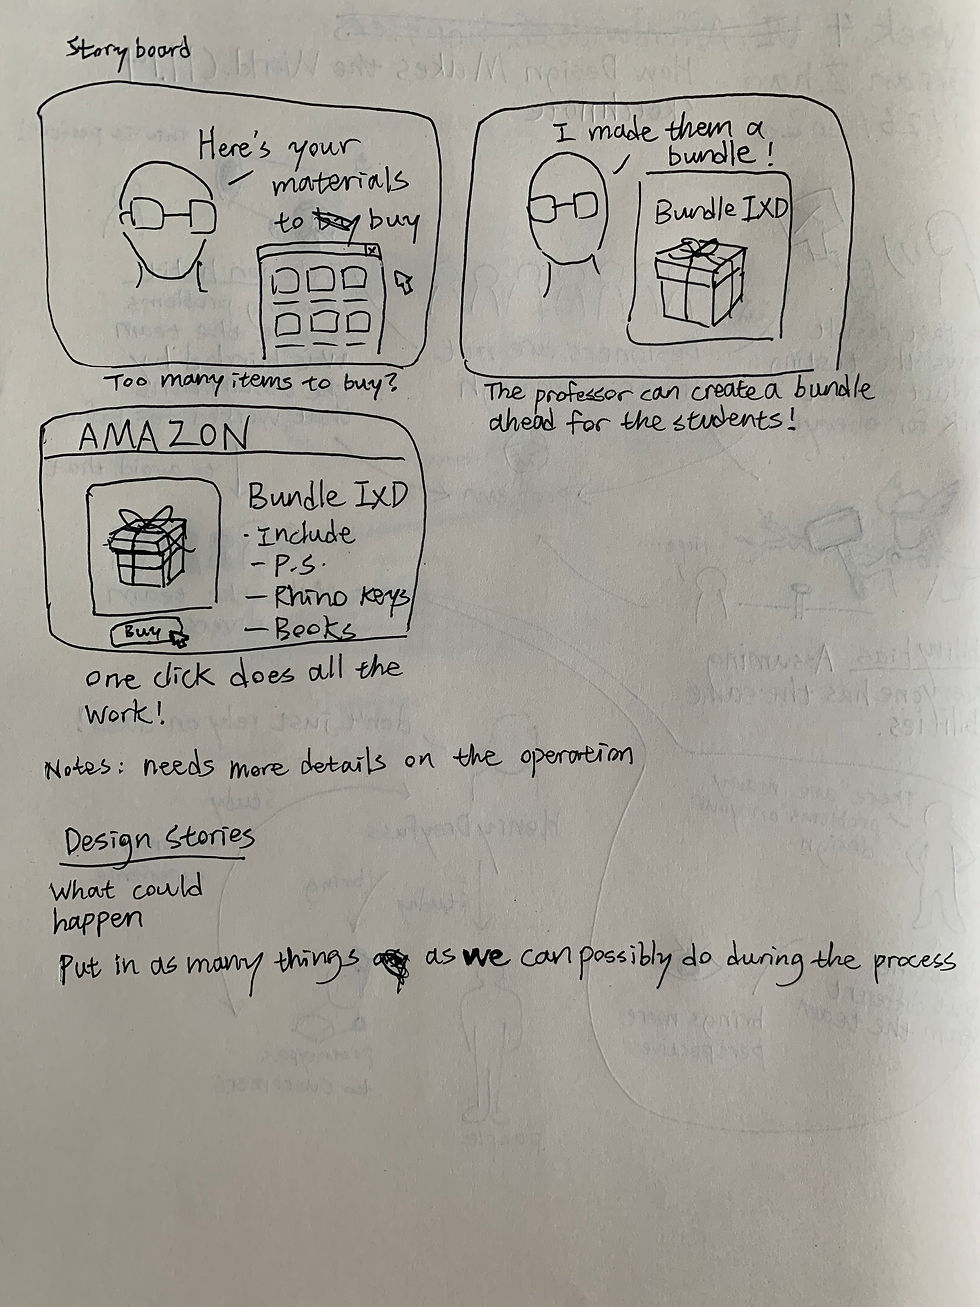 Story board
Here's your
materials
to buy
Too many items to buy?
I made them a
bundle!
Bundle IXD
The professor can create a bundle
ahead for the students!
AMAZON
Bundle IXD
· Include
- P.S.
- Rhino keys
- Books
Buy
one click does all the
work!
Notes: needs more details on the operation
Design Stories
What could
happen
Put in as many things as we can possibly do during the process